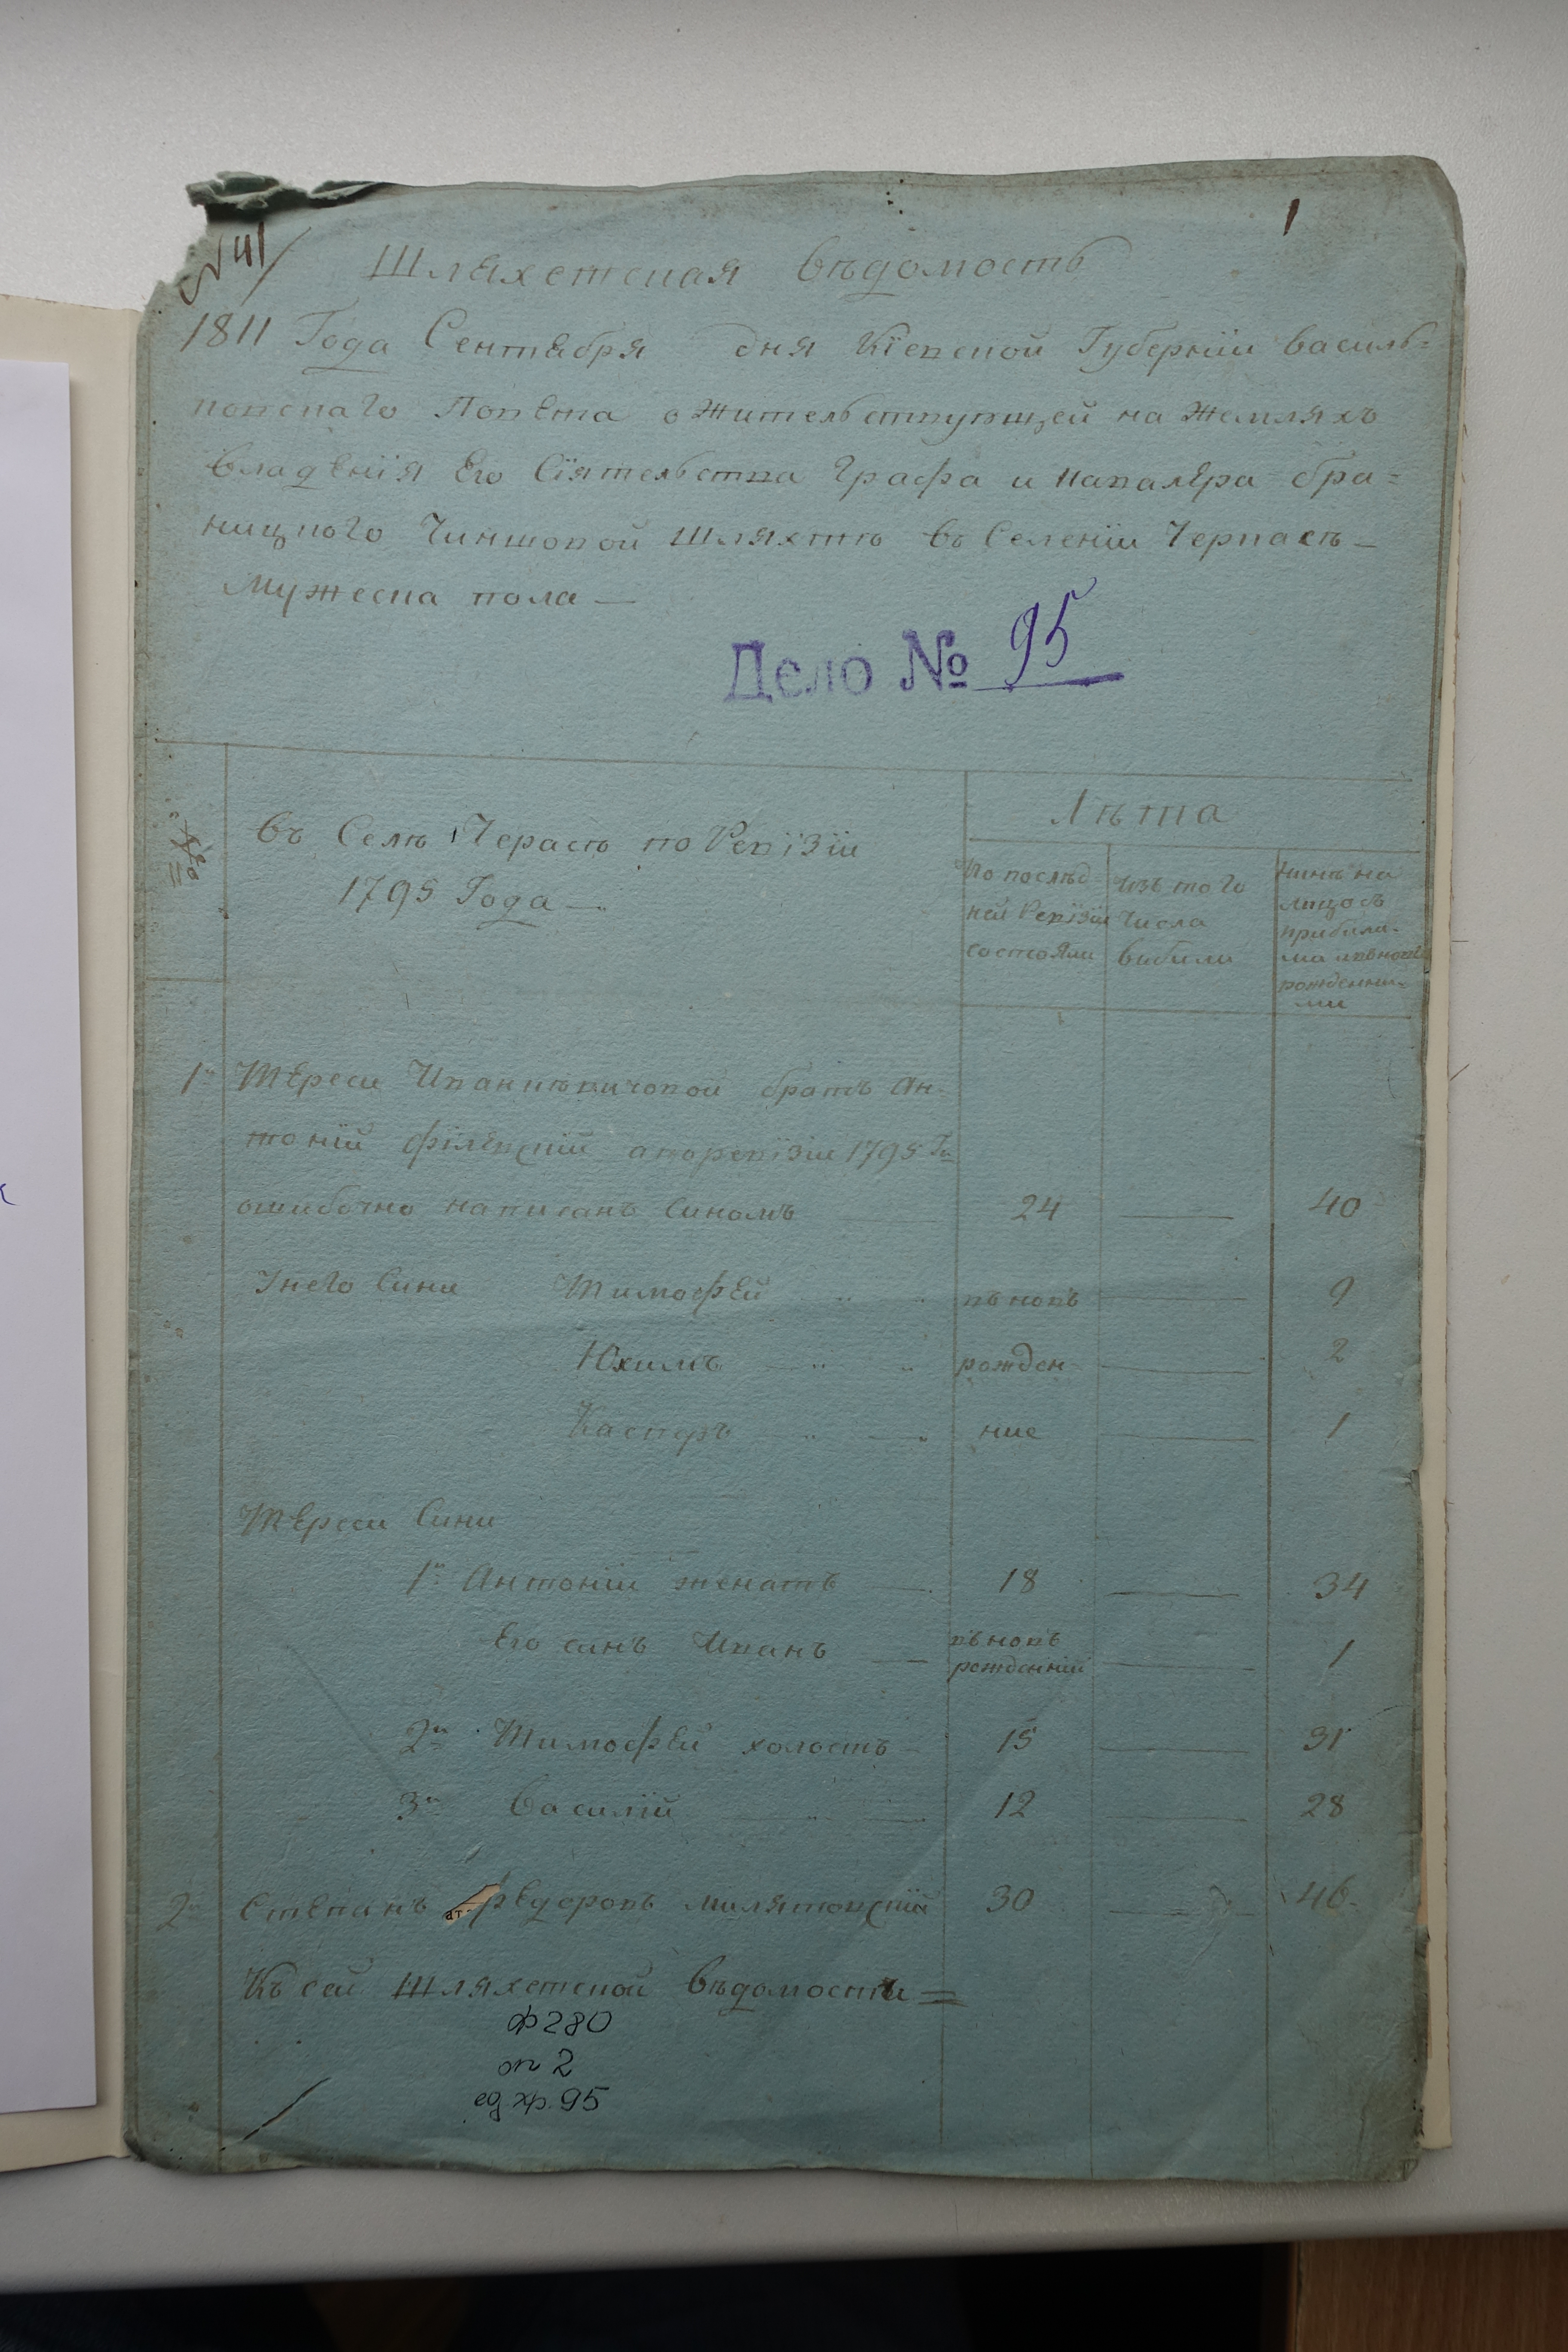 № 41
1
Шляхетская Вѣдомость
1811 Года Сентября дня Кіевской Губерніи Василь=
ковскаго Повѣта о Жительствующей на Жемляхъ
Владенія Его Сіятельства Графа и Кавалера Бра=
ницкого Чиншовой Шляхтѣ въ Селеніи Черкасѣ—
Мужеска пола —
Дело № 95
№
Въ Селѣ Черасѣ по Ревізіи
1795 Года —
Лѣта
По послѣд
ней Ревізіи
состояли
Изъ того
Числа
Выбили
Нинѣ на
лицо съ
прибили-
ма и вновь
рожденни-
ми
1й Тереси Иванкѣвичовой братъ Ан-
тоній Філѣвскій а по ревізіи 1795 Го
ошибочно написанъ Синомъ 24 — 40
Унего Сини Тимофей вь новь — 9
Юхимъ рожден — 2
Касперъ ние — 1
Тереси Сини
1й Антоніи женатъ — 18 — 34
Его синъ Иванъ — вь новь рожденній — 1
2й Тимофей холостъ — 15 — 31
3й Василій — 12 — 28
2й Степанъ Федоровъ Милятовскій 30 — 46
Къ сей Шляхетской Вѣдомости =
ф 280
оп 2
ед. хр. 95